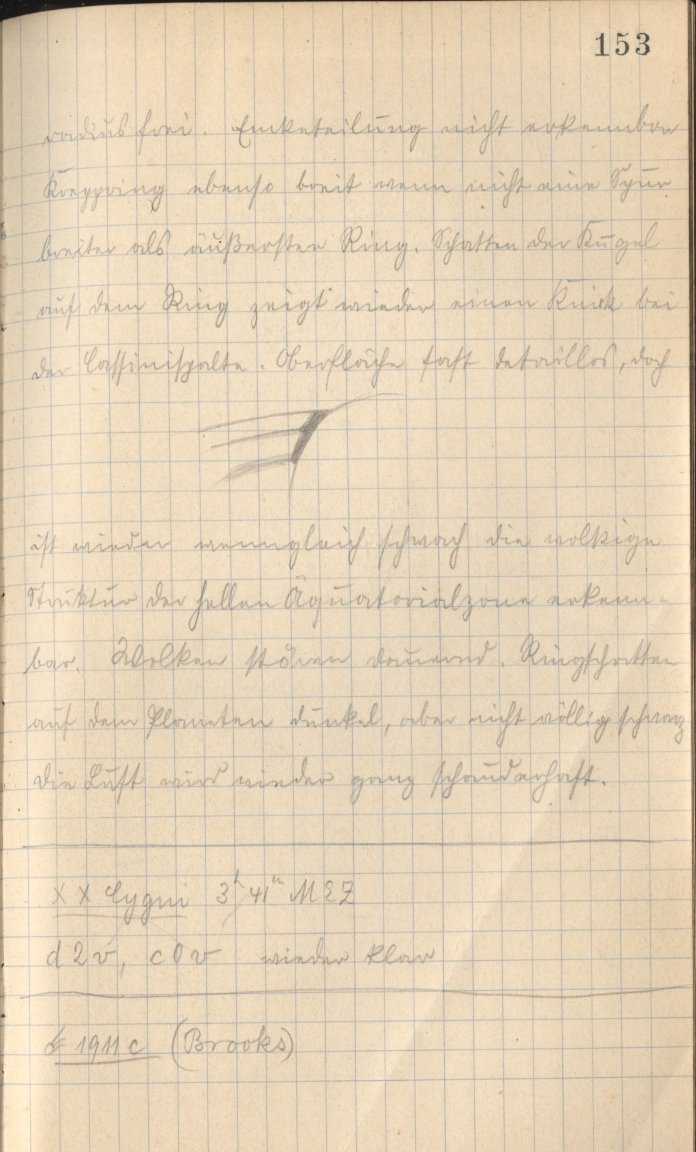 153
radius frei. Enketeilung nicht erkennbar
Kreppring ebenso breit wenn nicht eine Spur
breiter als äußerster Ring. Schatten der Kugel
auf dem Ring zeigt wieder einen Knick bei
der Cassinispalte. Oberfläche fast detaillos, doch
ist wieder wenngleich schwach die wolkige
Struktur der hellen Äquatorialzone erkenn-
bar. Wolken stören dauernd. Ringschatten
auf dem Planeten dunkel, aber nicht völlig schwarz
die Luft wird wieder ganz schauderhaft.
X X Cygni 3h 41m MEZ
d 2 v, c 0 v wieder klar
☄ 1911 c (Brooks)